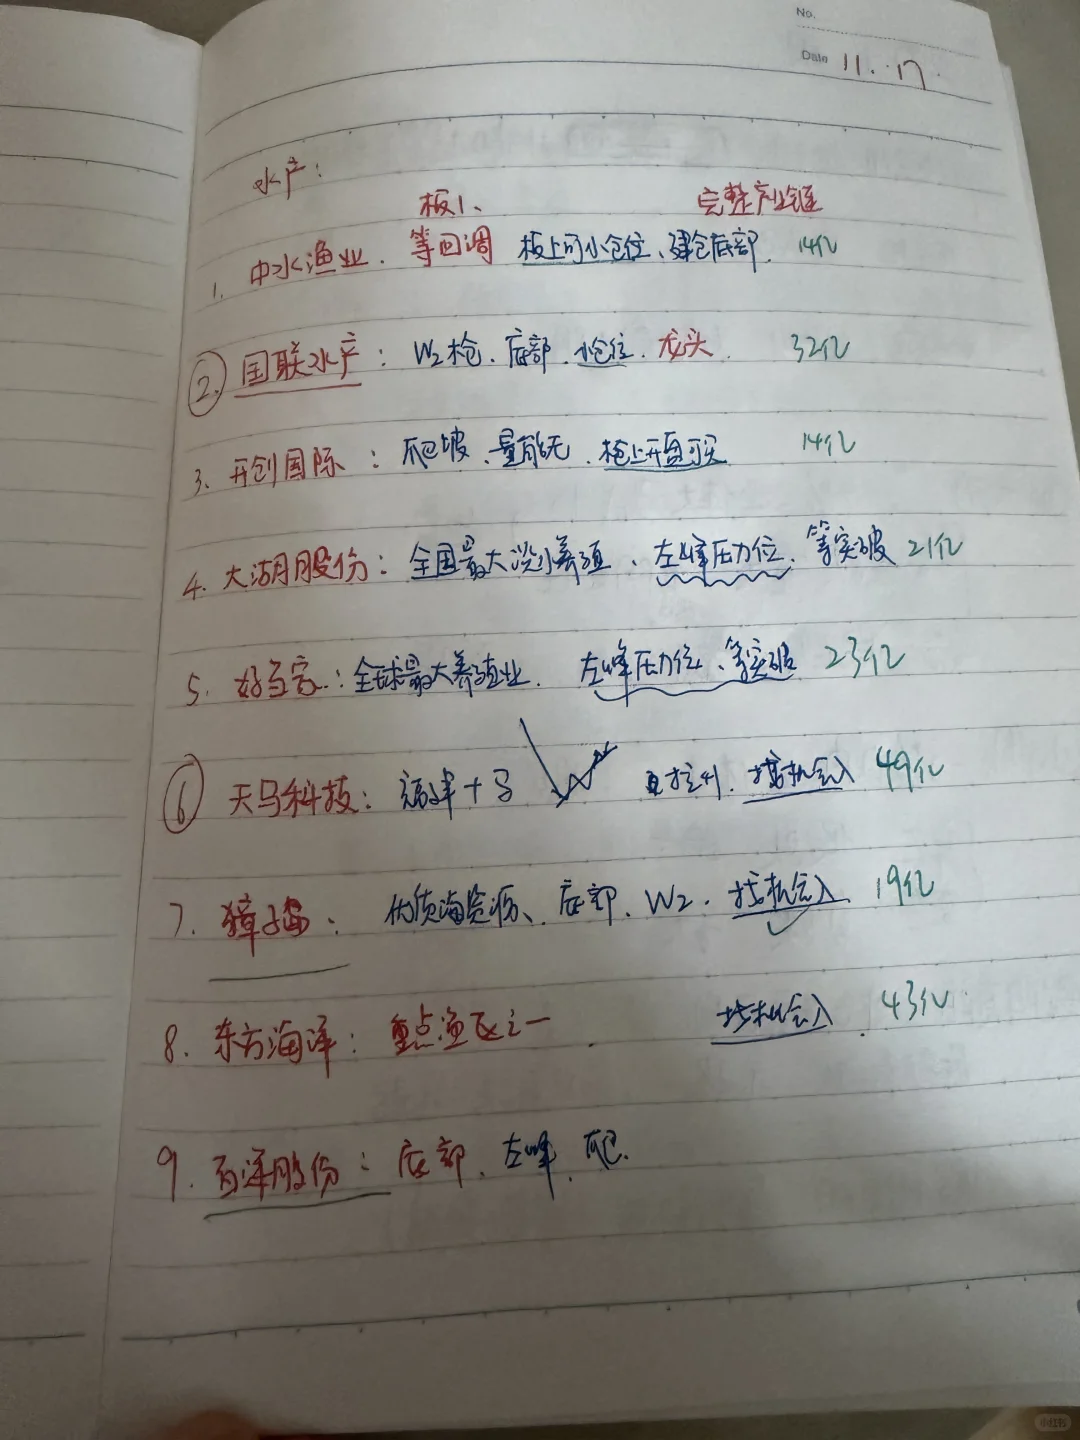 No.
Date 11.17.
水产:
板1、 完整产业链
1. 中水渔业. 等回调 板上可小仓位、建仓底部. 14亿
2. 国联水产: W2枪. 底部. 小仓位. 龙头. 32亿
3. 开创国际: 爬坡、量能无. 枪上开盘可买 14亿
4. 大湖股份: 全国最大淡水养殖、左峰压力位. 等突破 21亿
5. 好当家: 全球最大养殖业. 左峰压力位、等突破 23亿
6 天马科技: 福建+马 找机会入 49亿
7. 獐子岛: 优质海资源、底部、W2. 找机会入 19亿
8. 东方海洋: 重点渔区之一. 找机会入. 43亿
9. 百洋股份: 底部、左峰. 爬.
小红书